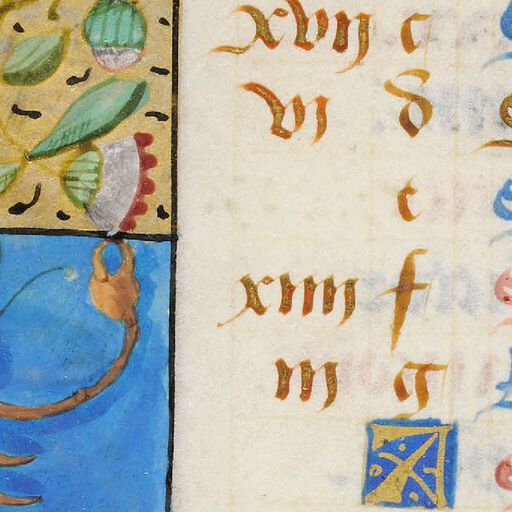 xvij c
vi d
e
xiiij f
iij g
A